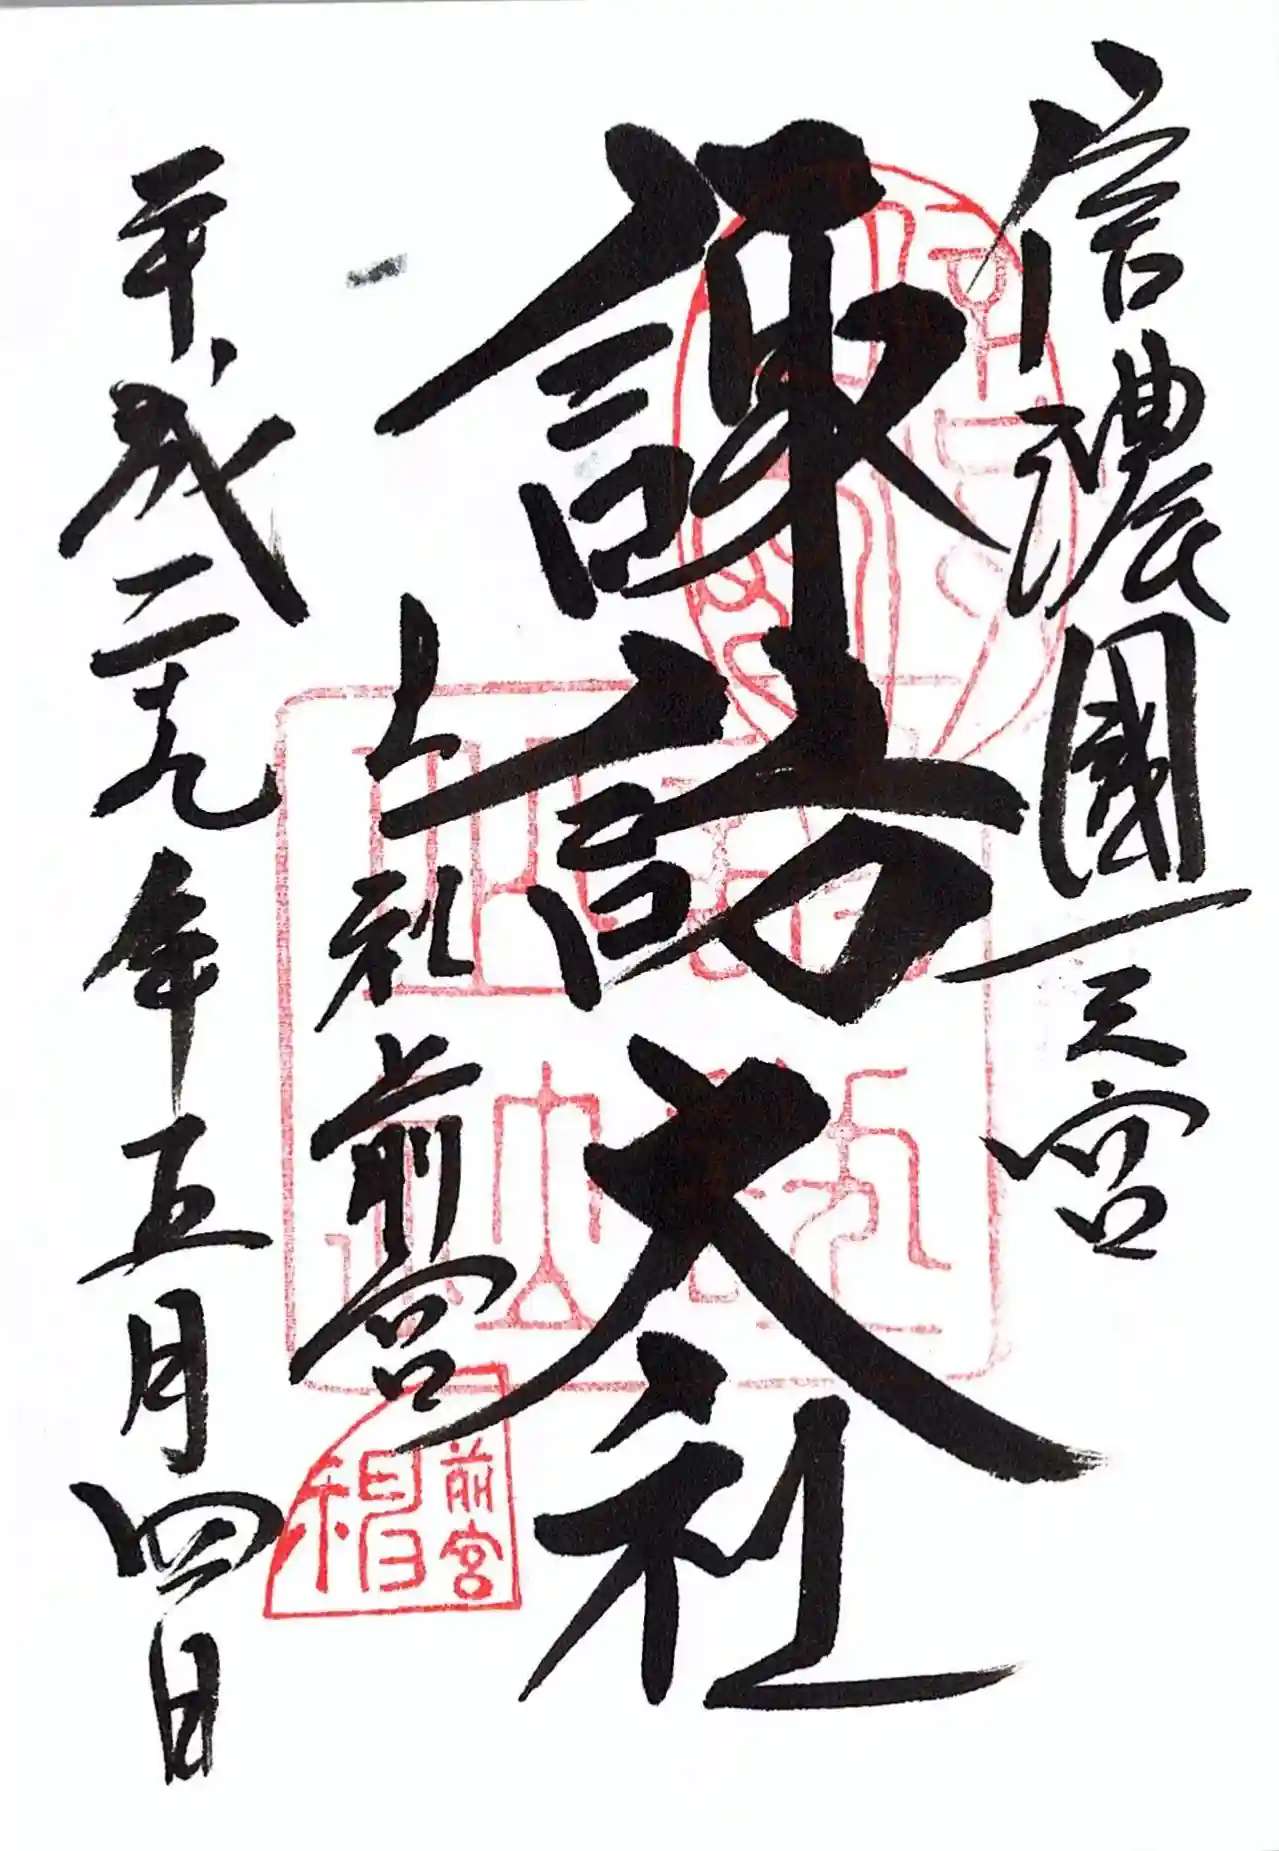 信濃國一之宮
諏訪大社
上社前宮
平成二十九年五月四日
前宮